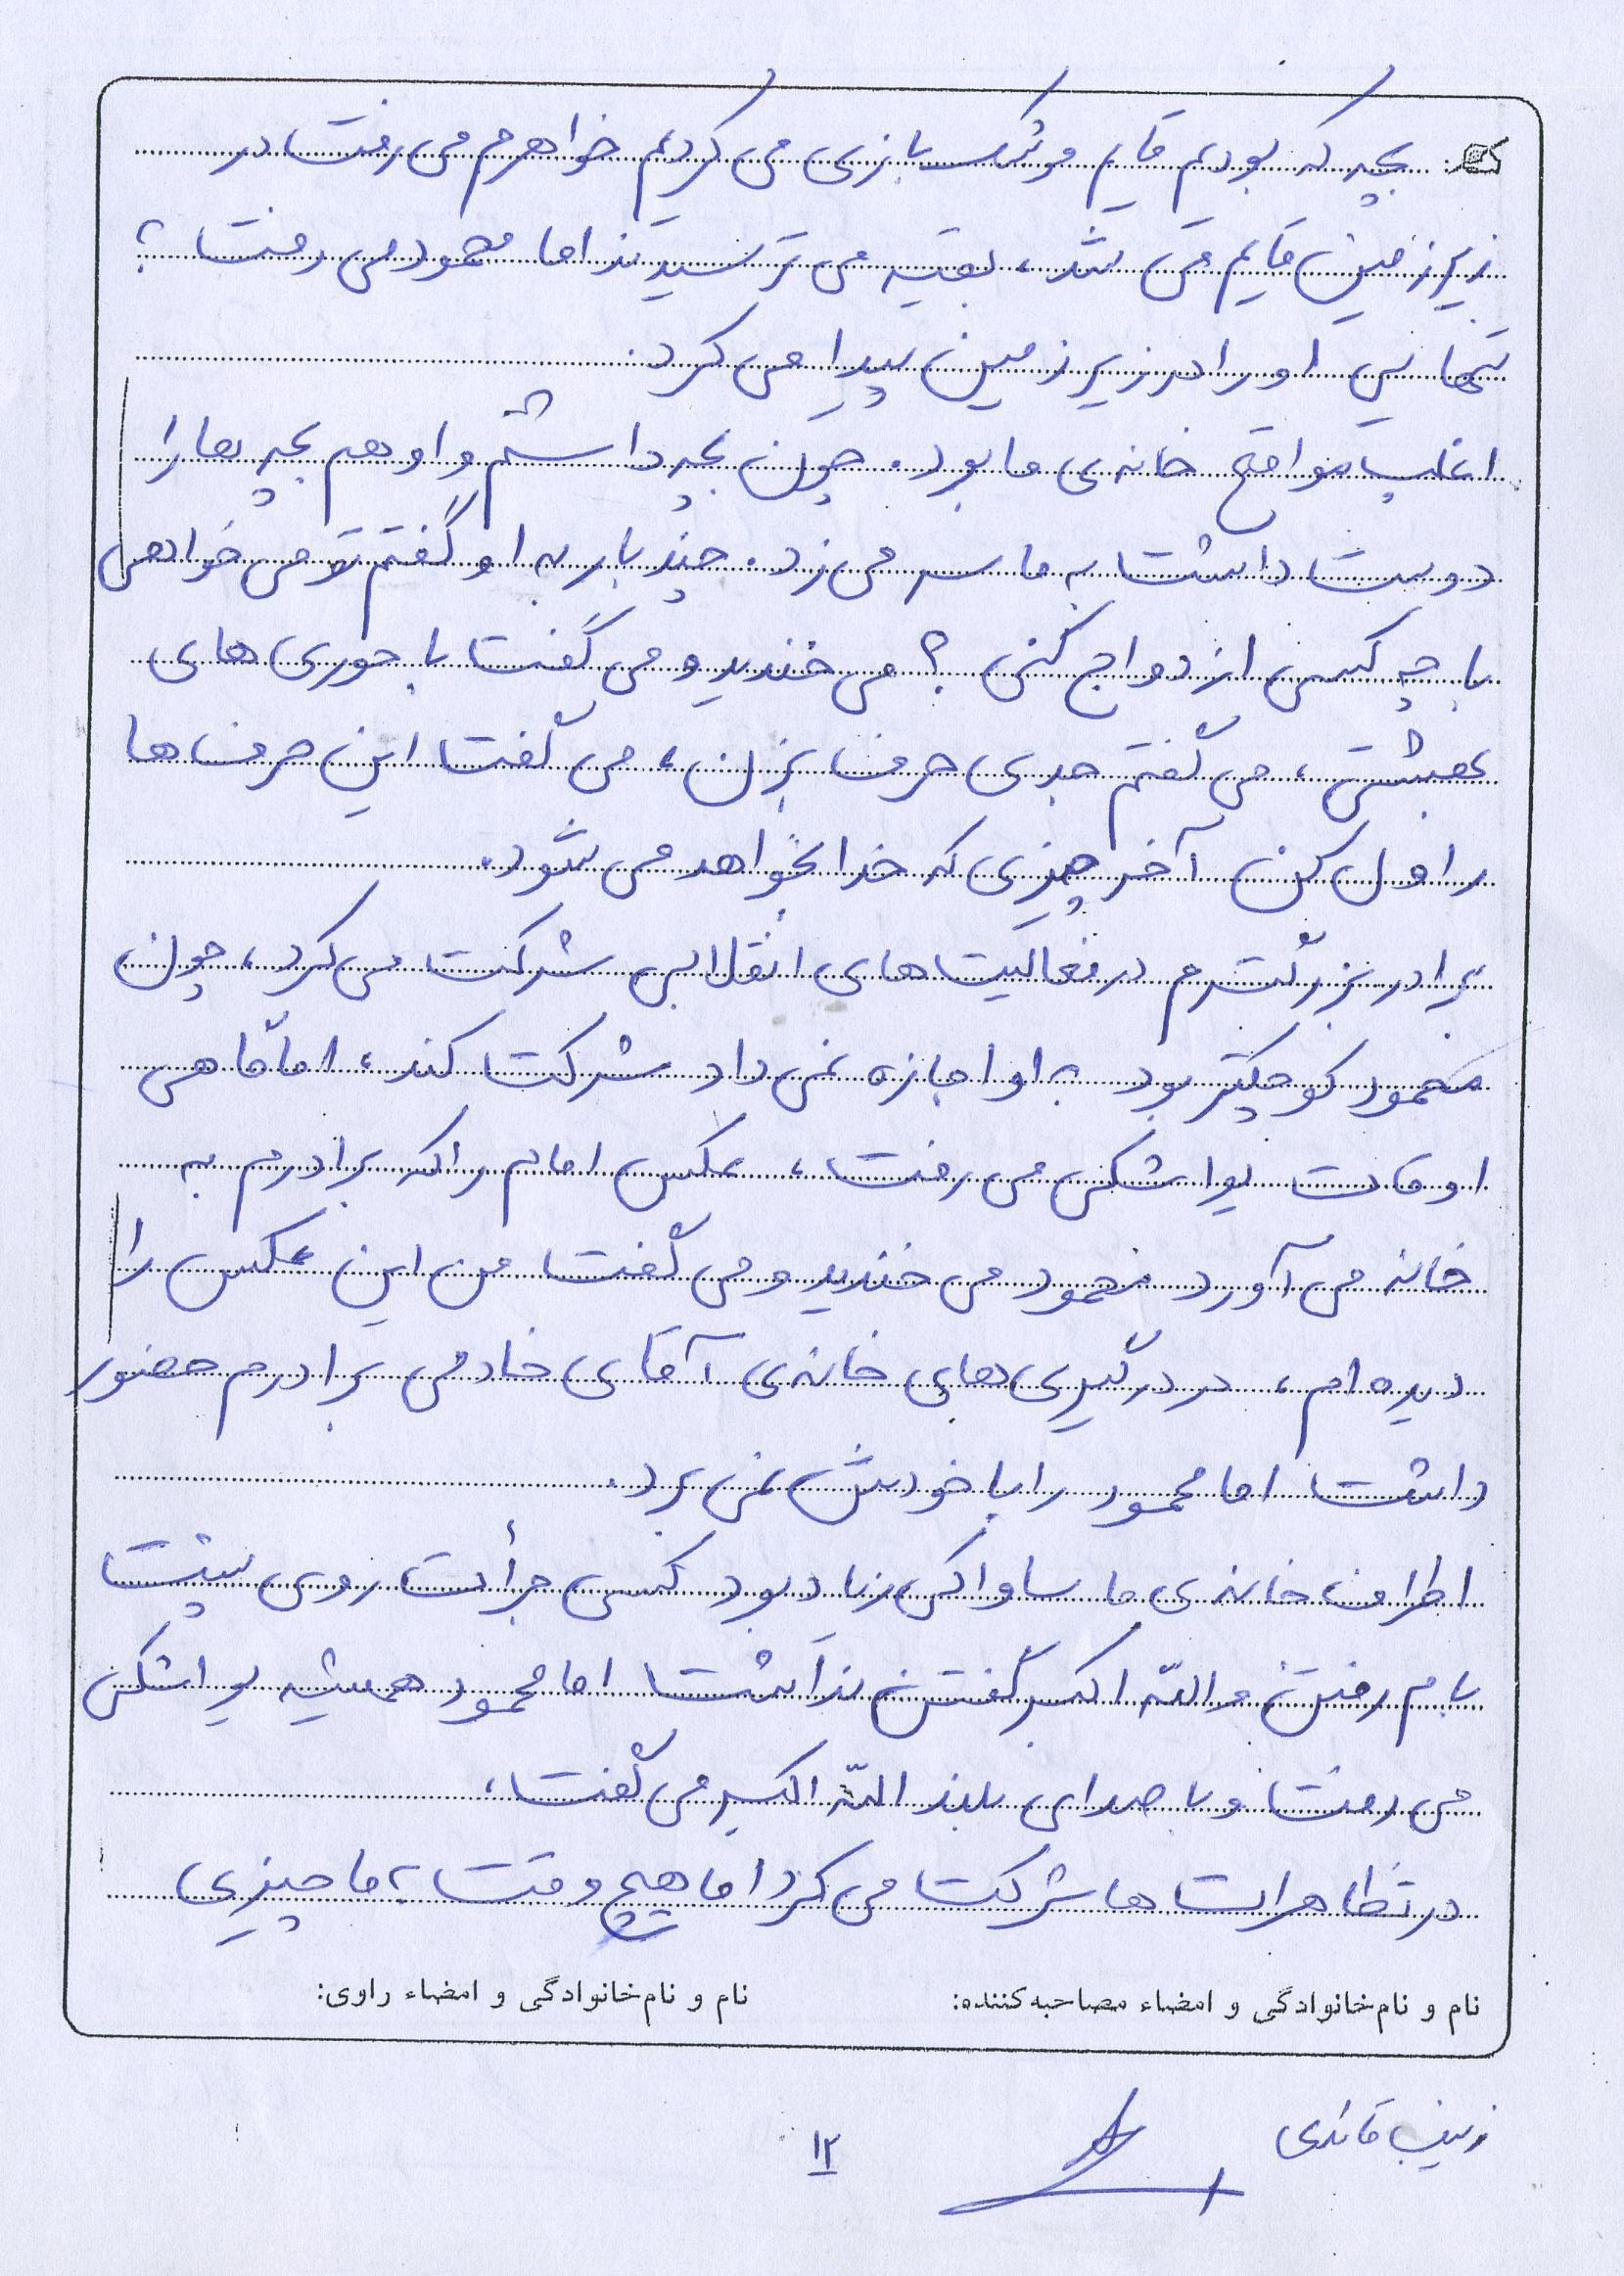 بچه که بودیم قایم موشک بازی می کردیم خواهرم می رفت در
زیرزمین قایم می شد، بقیه می ترسیدند اما محمود می رفت ؟
تنهایی او را در زیرزمین پیدا می کرد.
اغلب مواقع خانه ی ما بود. چون بچه داشتم و او هم بچه ها را
دوست داشت به ما سر می زد. چند بار به او گفتم تو می خواهی
با چه کسی ازدواج کنی ؟ می خندید و می گفت با حوری های
بهشتی، می گفتم جدی حرف بزن، می گفت این حرف ها
را ول کن آخر چیزی که خدا بخواهد می شود.
برادر بزرگترم در فعالیت های انقلابی شرکت می کرد، چون
محمود کوچکتر بود به او اجازه نمی داد شرکت کند، اما گاهی
اوقات یواشکی می رفت، عکس امام را که برادرم به
خانه می آورد محمود می خندید و می گفت من این عکس را
دیده ام، در درگیری های خانه ی آقای خادمی برادرم حضور
داشت اما محمود را با خودش نمی برد.
اطراف خانه ی ما ساواکی زیاد بود کسی جرأت روی پشت
بام رفتن و الله اکبر گفتن نداشت اما محمود همیشه یواشکی
می رفت و با صدای بلند الله اکبر می گفت،
در تظاهرات ها شرکت می کرد اما هیچ وقت به ما چیزی
نام و نام‌خانوادگی و امضاء مصاحبه‌کننده: نام و نام‌خانوادگی و امضاء راوی:
زینب قائدی
۱۲